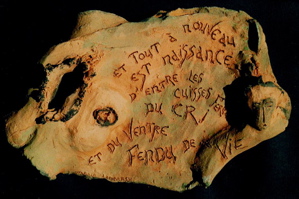 ET TOUT À NOUVEAU
EST NAISSANCE
D'ENTRE LES
CUISSES
DU CRI
ET DU VENTRE
FENDU DE VIE